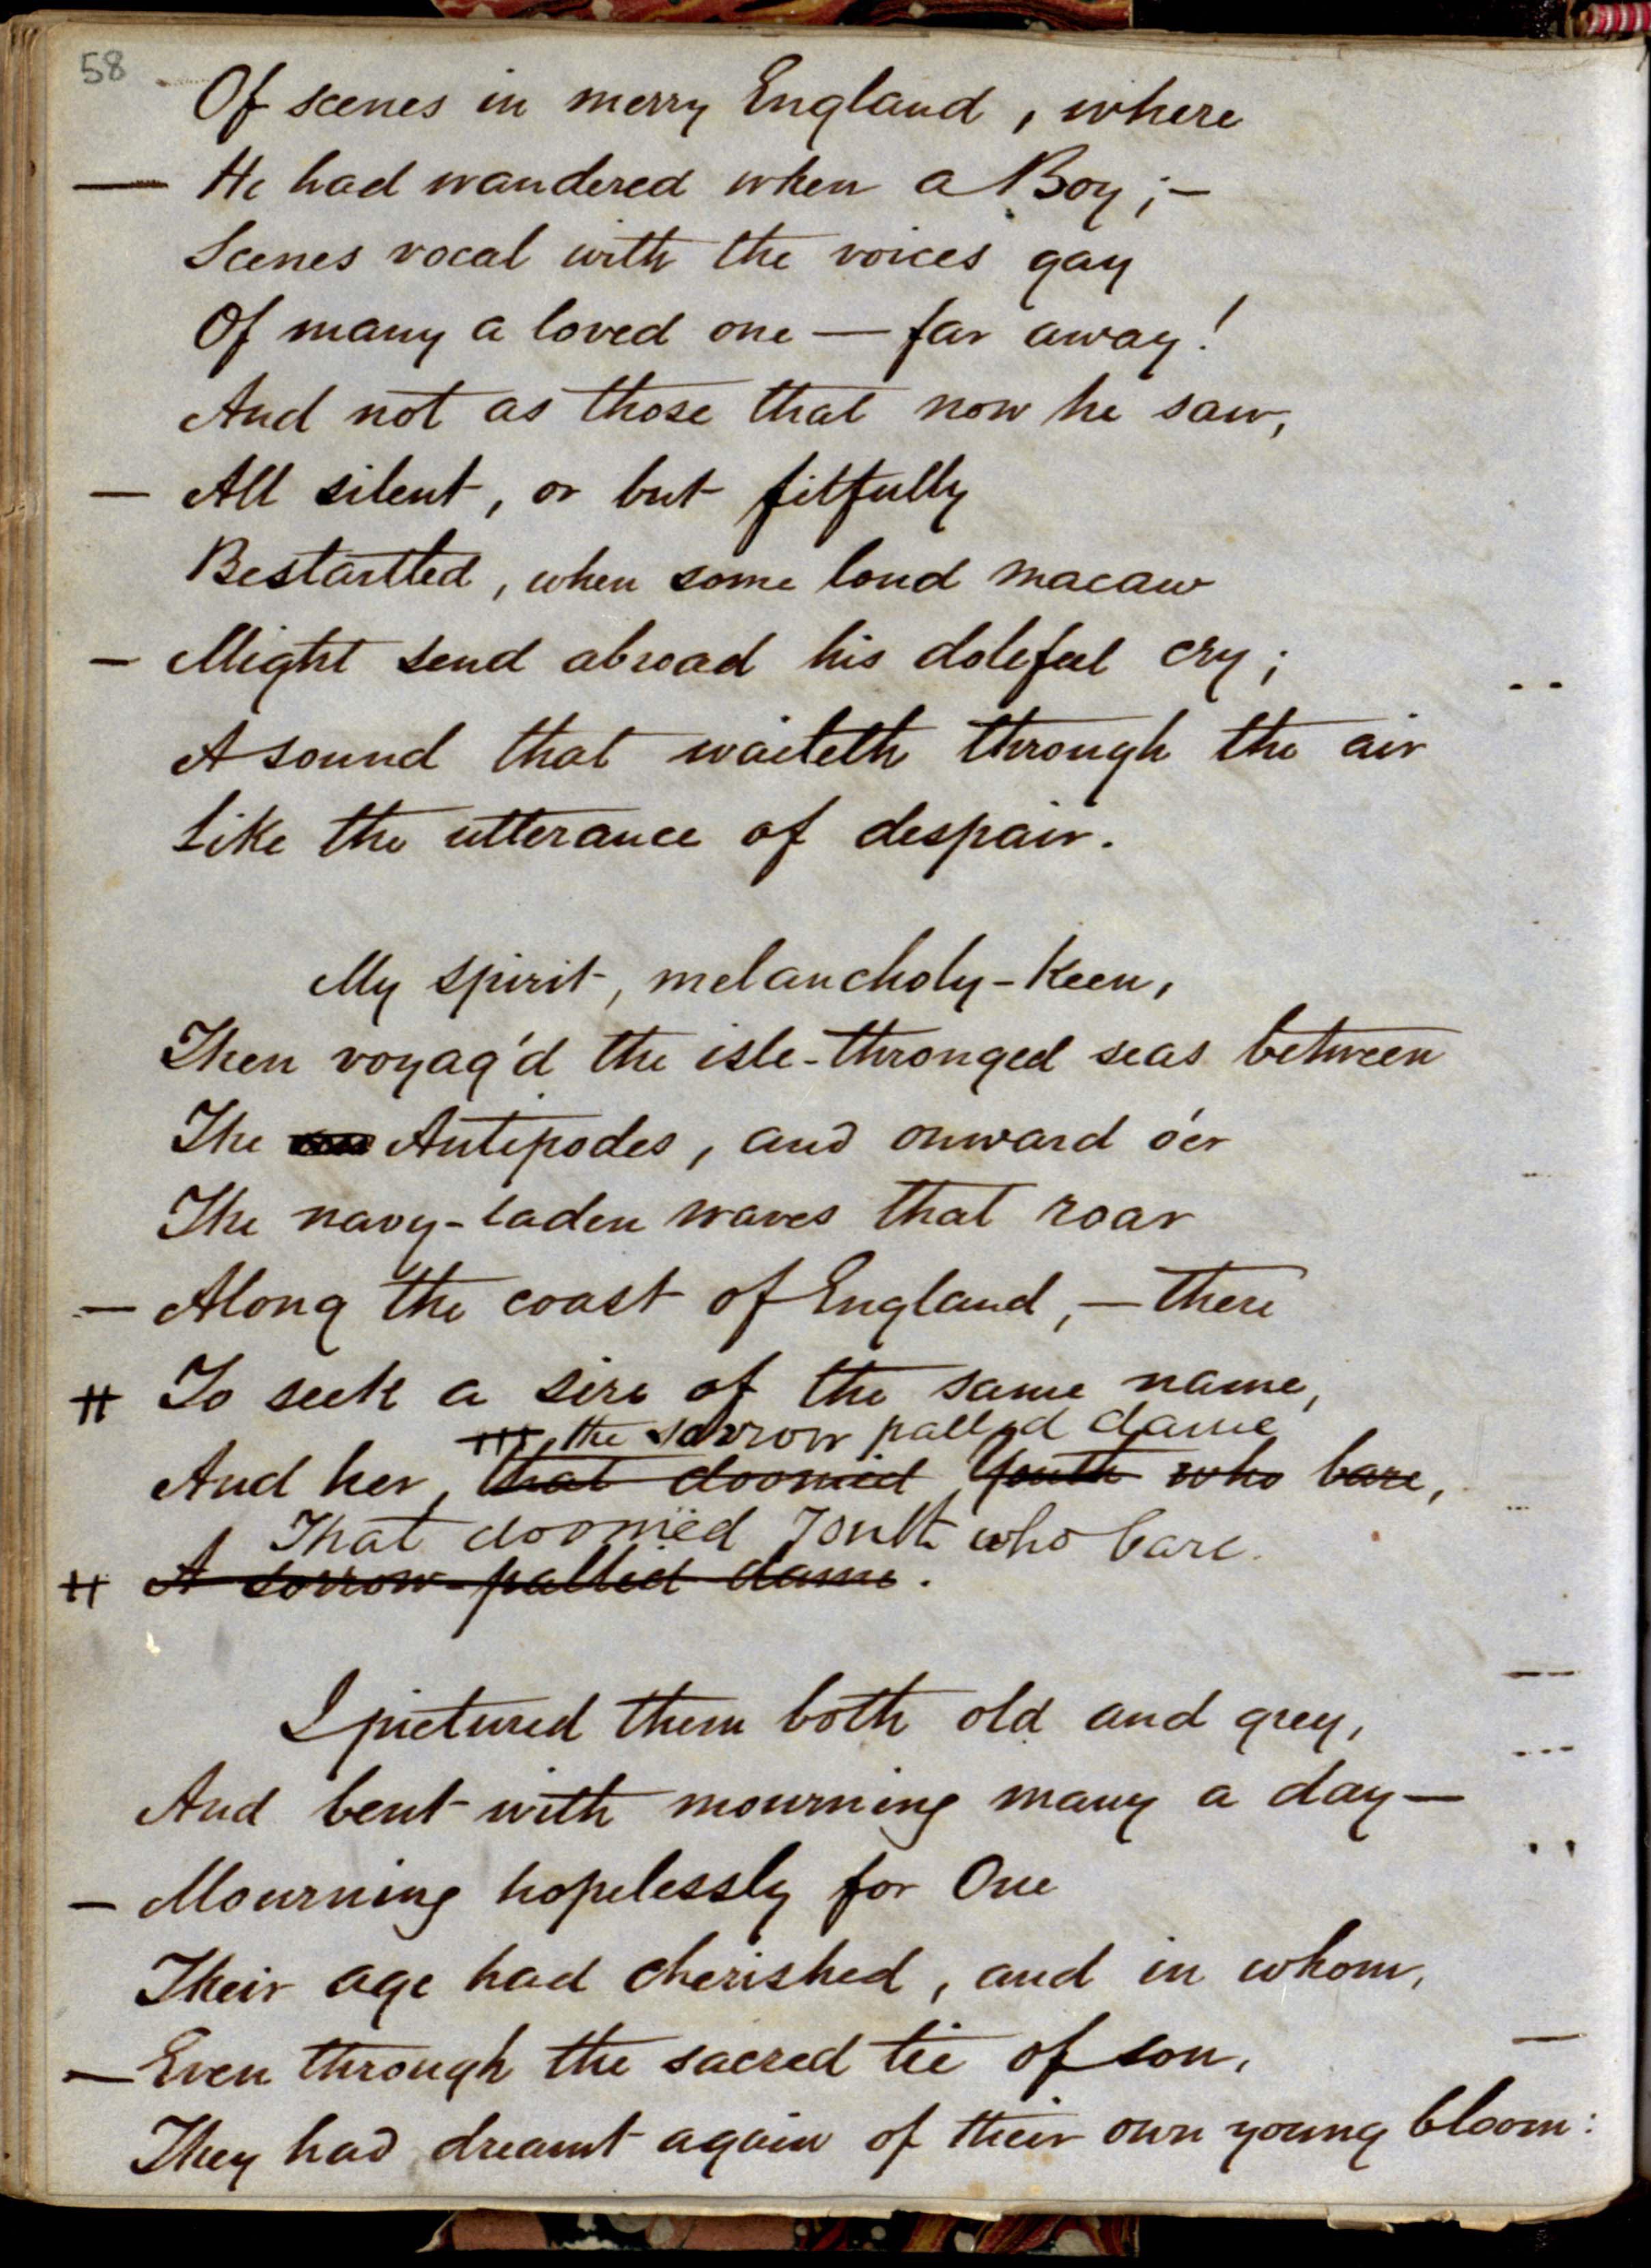 58
Of scenes in merry England, where
— He had wandered when a Boy;—
Scenes vocal with the voices gay
Of many a loved one — far away!
And not as those that now he saw,
— All silent, or but fitfully
Bestartled, when some loud macaw
— Might send abroad his doleful cry;
A sound that waileth through the air
Like the utterance of despair.
My spirit, melancholy-keen,
Then voyag'd the isle-thronged seas between
The Antipodes, and onward o'er
The navy-laden waves that roar
— Along the coast of England,— there
To seek a sire of the same name,
the sorrow pallid dame
And her, that doomèd Youth who bare,
That doomëd Youth who bare.
A sorrow-pallid dame.
I pictured them both old and grey,
And bent with mourning many a day—
— Mourning hopelessly for One
Their age had cherished, and in whom,
— Even through the sacred tie of son,
They had dreamt again of their own young bloom: